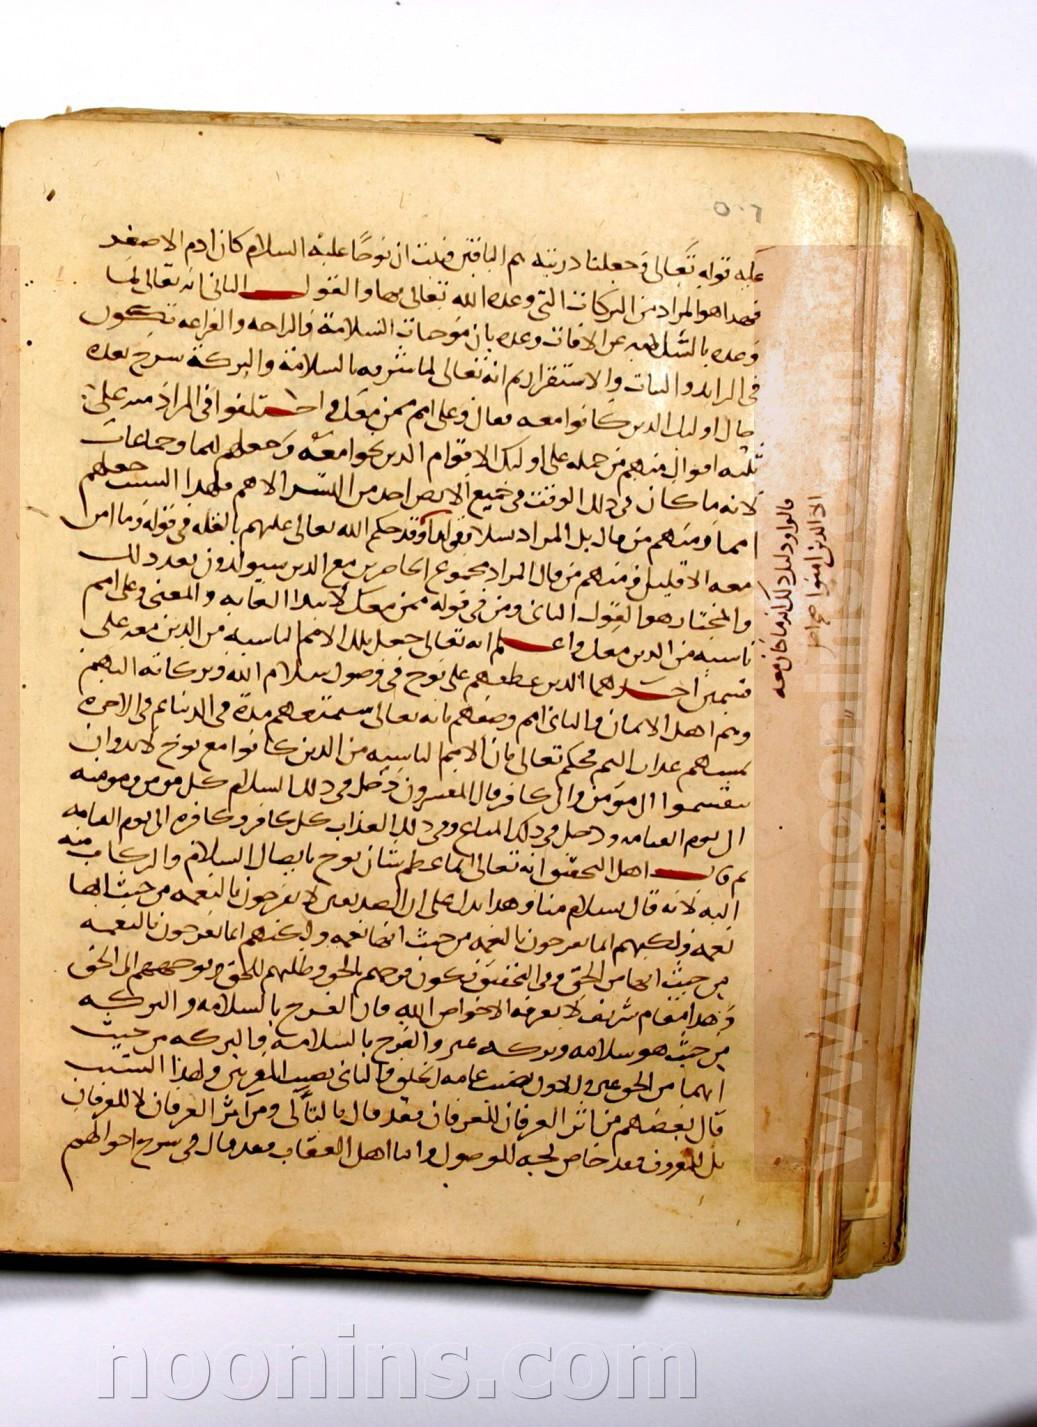 عليه قوله تعالى وجعلنا ذريته هم الباقين فثبت ان نوحا عليه السلام كان ادم الاصغر
فهذا هو المراد من البركات التي وعده الله تعالى بها والقول الثاني انه تعالى لما
وعده بالسلامة عن الافات وعده بان موجبات السلامة والراحه والفراغه تكون
في التزايد والثبات والاستقرار ثم انه تعالى لما شرفه بالسلامة والبركة شرح بعده
حال اولئك الذين كانوا معه فقال وعلى امم ممن معك واختلفوا في المراد منه على
ثلثه اقوال منهم من حمله على اولئك الاقوام الذين نجوا معه وجعلهم امما وجماعات
لانه ما كان في ذلك الوقت في جميع الارض احد من البشر الا هم فلهذا السبب جعلهم
امما ومنهم من قال بل المراد
وقد حكم الله تعالى عليهم بالقله في قوله وما امن
معه الا قليل ومنهم من قال المراد مجموع الحاضرين مع الذين سيولدون بعد ذلك
والمختار هو القول الثاني ومن في قوله ممن معك لابتدا الغايه والمعنى وعلى امم
ناشيه من الذين معك واعلم انه تعالى جعل تلك الامم الناشيه من الذين معه على
قسمين احدهما الذين عطفهم على نوح في وصول سلام الله وبركاته اليهم
وهم اهل الايمان والثاني امم وصفهم بانه تعالى سيمتعهم مدة في الدنيا ثم في الاخرة
يمسهم عذاب اليم فحكم تعالى بان الامم الناشيه من الذين كانوا مع نوح لا بد وان
ينقسموا الى مؤمن والى كافر قال المفسرون دخل في ذلك السلام كل مومن ومومنه
الى يوم القيامه ودخل في ذلك المتاع وفي ذلك العذاب كل كافر وكافره الى يوم القيامه
ثم قال اهل التحقيق انه تعالى انما عظم شان نوح بايصال السلام والبركات منه
اليه لانه قال بسلام منا وهذا يدل على ان الصديقين لا يفرحون بالنعمه من حيث انها
نعمه ولكنهم انما يفرحون بالنعمه
من حيث انها من الحق وفي التحقيق يكون فرحهم بالحق وطلبهم للحق وتوجههم الى الحق
وهذا مقام شريف لا يعرفه الا خواص الله فان الفرح بالسلامه والبركه
من حيث هو سلامه وبركه غير والفرح بالسلامة والبركه من حيث
انهما من الحق غير والاول نصيب عامه الخلق والثاني نصيب المقربين ولهذا السبب
قال بعضهم من اثر العرفان للعرفان فقد قال بالثاني ومن اثر العرفان لا للعرفان
بل للمعروف فقد خاض لجه الوصول واما اهل العقاب فقد قال في شرح احوالهم
noonins.com
www.noonins.com